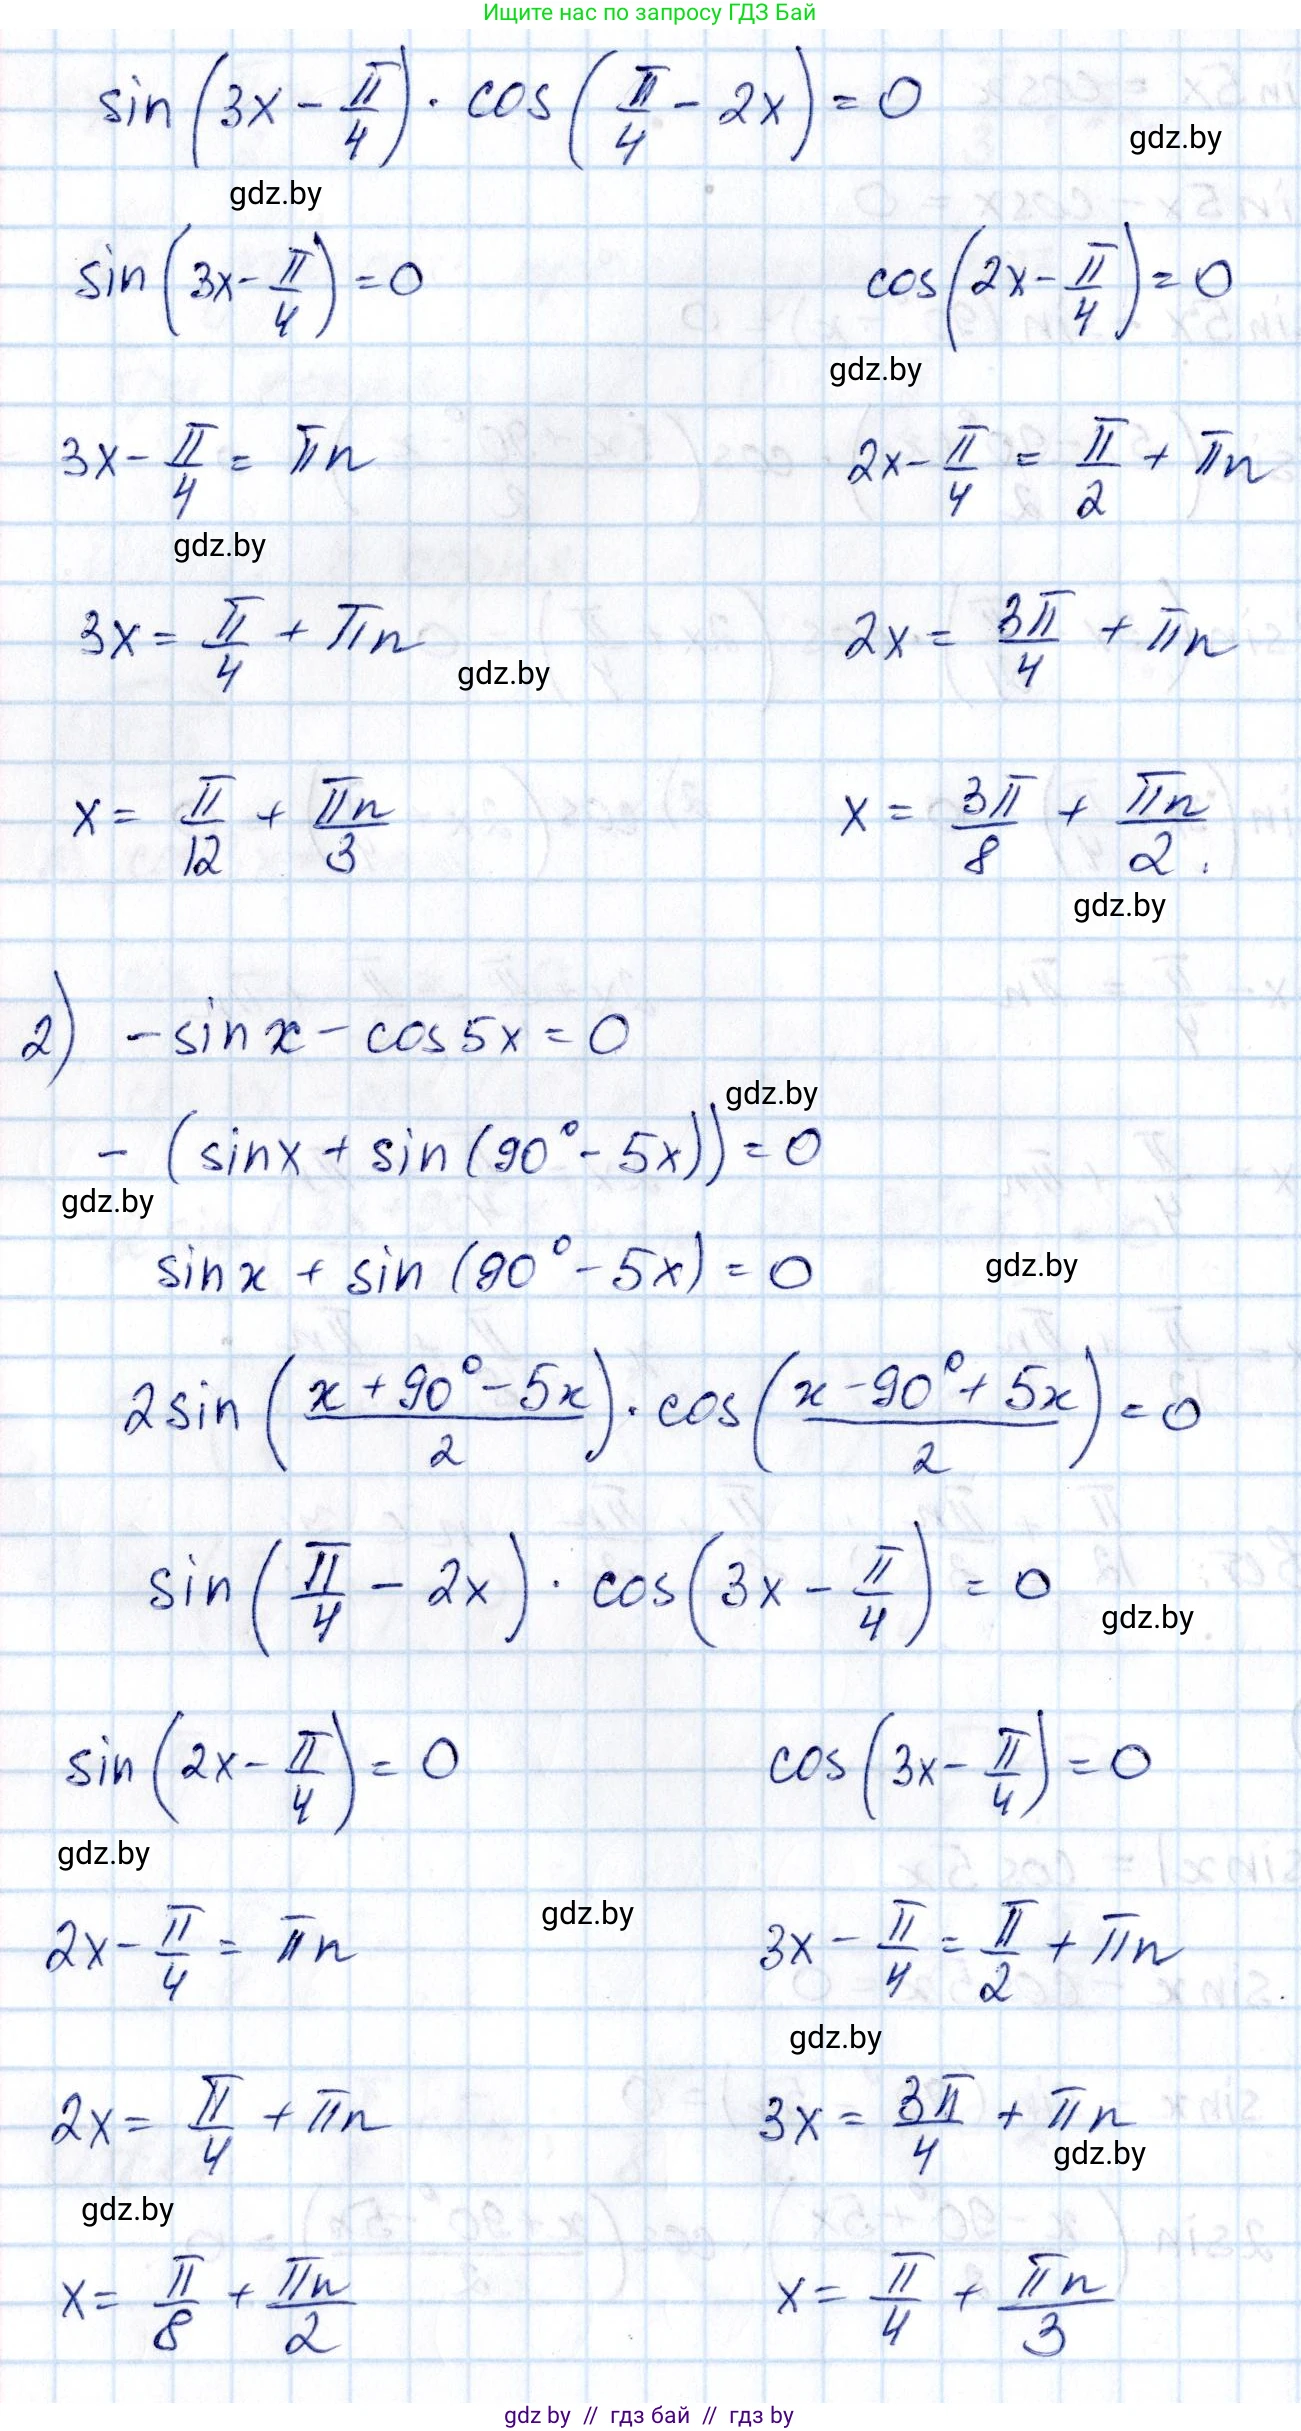 Ищите нас по запросу ГДЗ Бай
sin(3x - π/4) · cos(π/4 - 2x) = 0
gdz.by
gdz.by
sin(3x - π/4) = 0 cos(2x - π/4) = 0
gdz.by
3x - π/4 = πn 2x - π/4 = π/2 + πn
gdz.by
3x = π/4 + πn 2x = 3π/4 + πn
gdz.by
x = π/12 + πn/3 x = 3π/8 + πn/2.
gdz.by
2) - sin x - cos 5x = 0
gdz.by
- (sin x + sin (90° - 5x)) = 0
gdz.by
sin x + sin (90° - 5x) = 0
gdz.by
2 sin((x + 90° - 5x)/2) · cos((x - 90° + 5x)/2) = 0
sin(π/4 - 2x) · cos(3x - π/4) = 0
gdz.by
sin(2x - π/4) = 0 cos(3x - π/4) = 0
gdz.by
gdz.by
2x - π/4 = πn 3x - π/4 = π/2 + πn
gdz.by
2x = π/4 + πn 3x = 3π/4 + πn
gdz.by
gdz.by
x = π/8 + πn/2 x = π/4 + πn/3
gdz by // гдз бай // гдз by